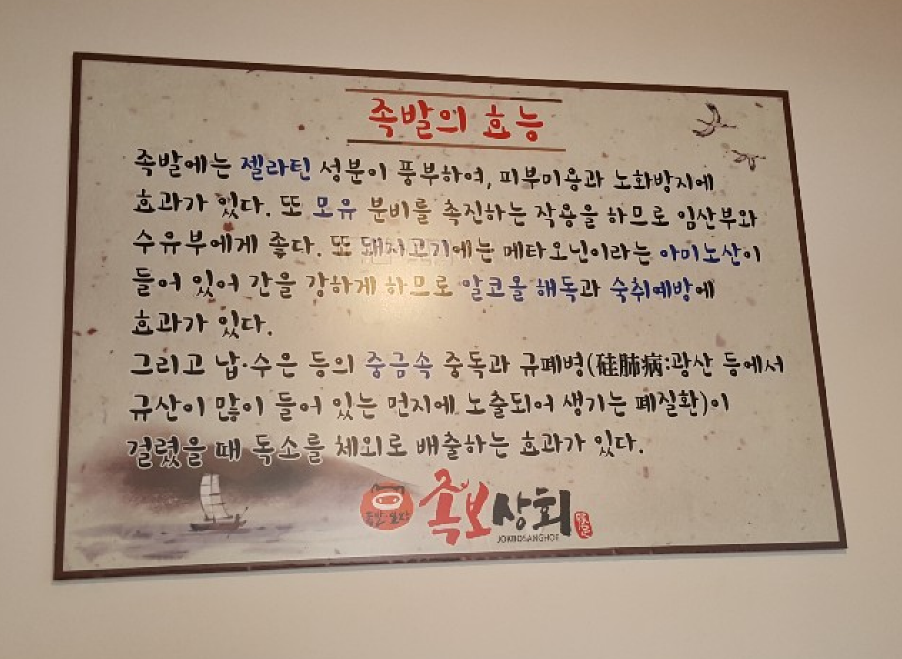 족발의 효능
족발에는 젤라틴 성분이 풍부하여, 피부미용과 노화방지에
효과가 있다. 또 모유 분비를 촉진하는 작용을 하므로 임산부와
수유부에게 좋다. 또 돼지고기에는 메타오닌이라는 아미노산이
들어 있어 간을 강하게 하므로 알코올 해독과 숙취예방에
효과가 있다.
그리고 납·수은 등의 중금속 중독과 규폐병(硅肺病:광산 등에서
규산이 많이 들어 있는 먼지에 노출되어 생기는 폐질환)이
걸렸을 때 독소를 체외로 배출하는 효과가 있다.
족보상회
JOKBOSANGHOE